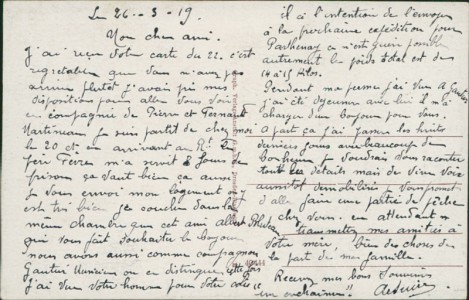 Le 26-3-19.
Mon cher ami.
J'ai reçu votre carte du 22. c'est
regretable que vous m'avez pas
arrivé plutot j'avais pris mes
dispositions pour aller vous voir
en compagnie de Pierre et Fernand
Martineau je suis partit de chez moi
le 20 ct. en arrivant au
m'a servit 8 jours de
prison ça vaut bien ça aussi
je vous envoi mon logement qui
est très bien je couche dans la
même chambre que cet ami Albert
qui vous fait souhaiter le bonjour
nous avons aussi comme compagnon
Gautier
j'ai vu votre homme pour votre
il a l'intention de l'envoyer
à la prochaine expédition pour
Parthenay ce n'est guère possible
autrement le poids total est des
14 à 15 kilos.
Pendant ma perme j'ai vu A Gautier
j'ai été déjeuner avec lui il m'a
chargé d'un bonjour pour vous.
A part ça j'ai passé les huits
derniers jours avec beaucoup de
bonheur je voudrais vous raconter
tout les détails mais de vive voix
aussitot demobilisé je vous promet
d'aller faire une partie de pêche
chez vous. en attendant
transmettez mes amitiés à
votre mère, bien des choses de
la part de ma famille.
Recevez mes bons souvenirs